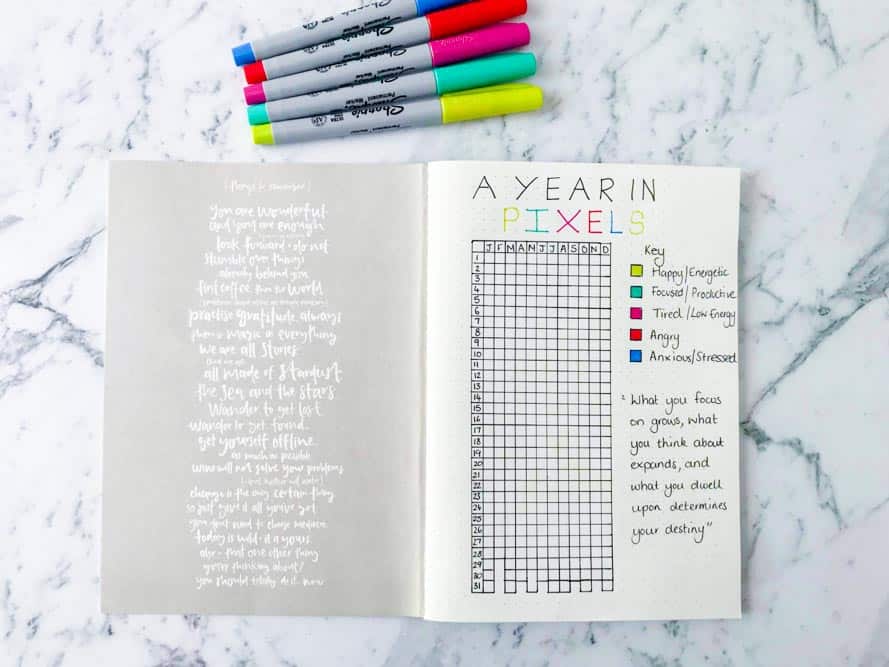 Sharpie
Permanent Marker
Sharpie
Permanent Marker
Sharpie
Sharpie
Permanent Marker
Sharpie
Permanent Marker
(things to remember)
you are wonderful
and you are enough
look forward · do not
stumble over things
already behind you
first coffee then the world
practise gratitude always
there is magic in everything
we are all stories
all made of stardust
the sea and the stars
wander to get lost
wander to get found
get yourself offline
as much as possible
wine will not solve your problems
change is the only certain thing
so just give it all you've got
you don't need to change
today is wild · it is yours
also - that one other thing
you're thinking about?
you should totally do it now
A YEAR IN
PIXELS
J F M A M J J A S O N D
1
2
3
4
5
6
7
8
9
10
11
12
13
14
15
16
17
18
19
20
21
22
23
24
25
26
27
28
29
30
31
Key
Happy/Energetic
Focused/Productive
Tired/Low Energy
Angry
Anxious/Stressed
"What you focus
on grows, what
you think about
expands, and
what you dwell
upon determines
your destiny"